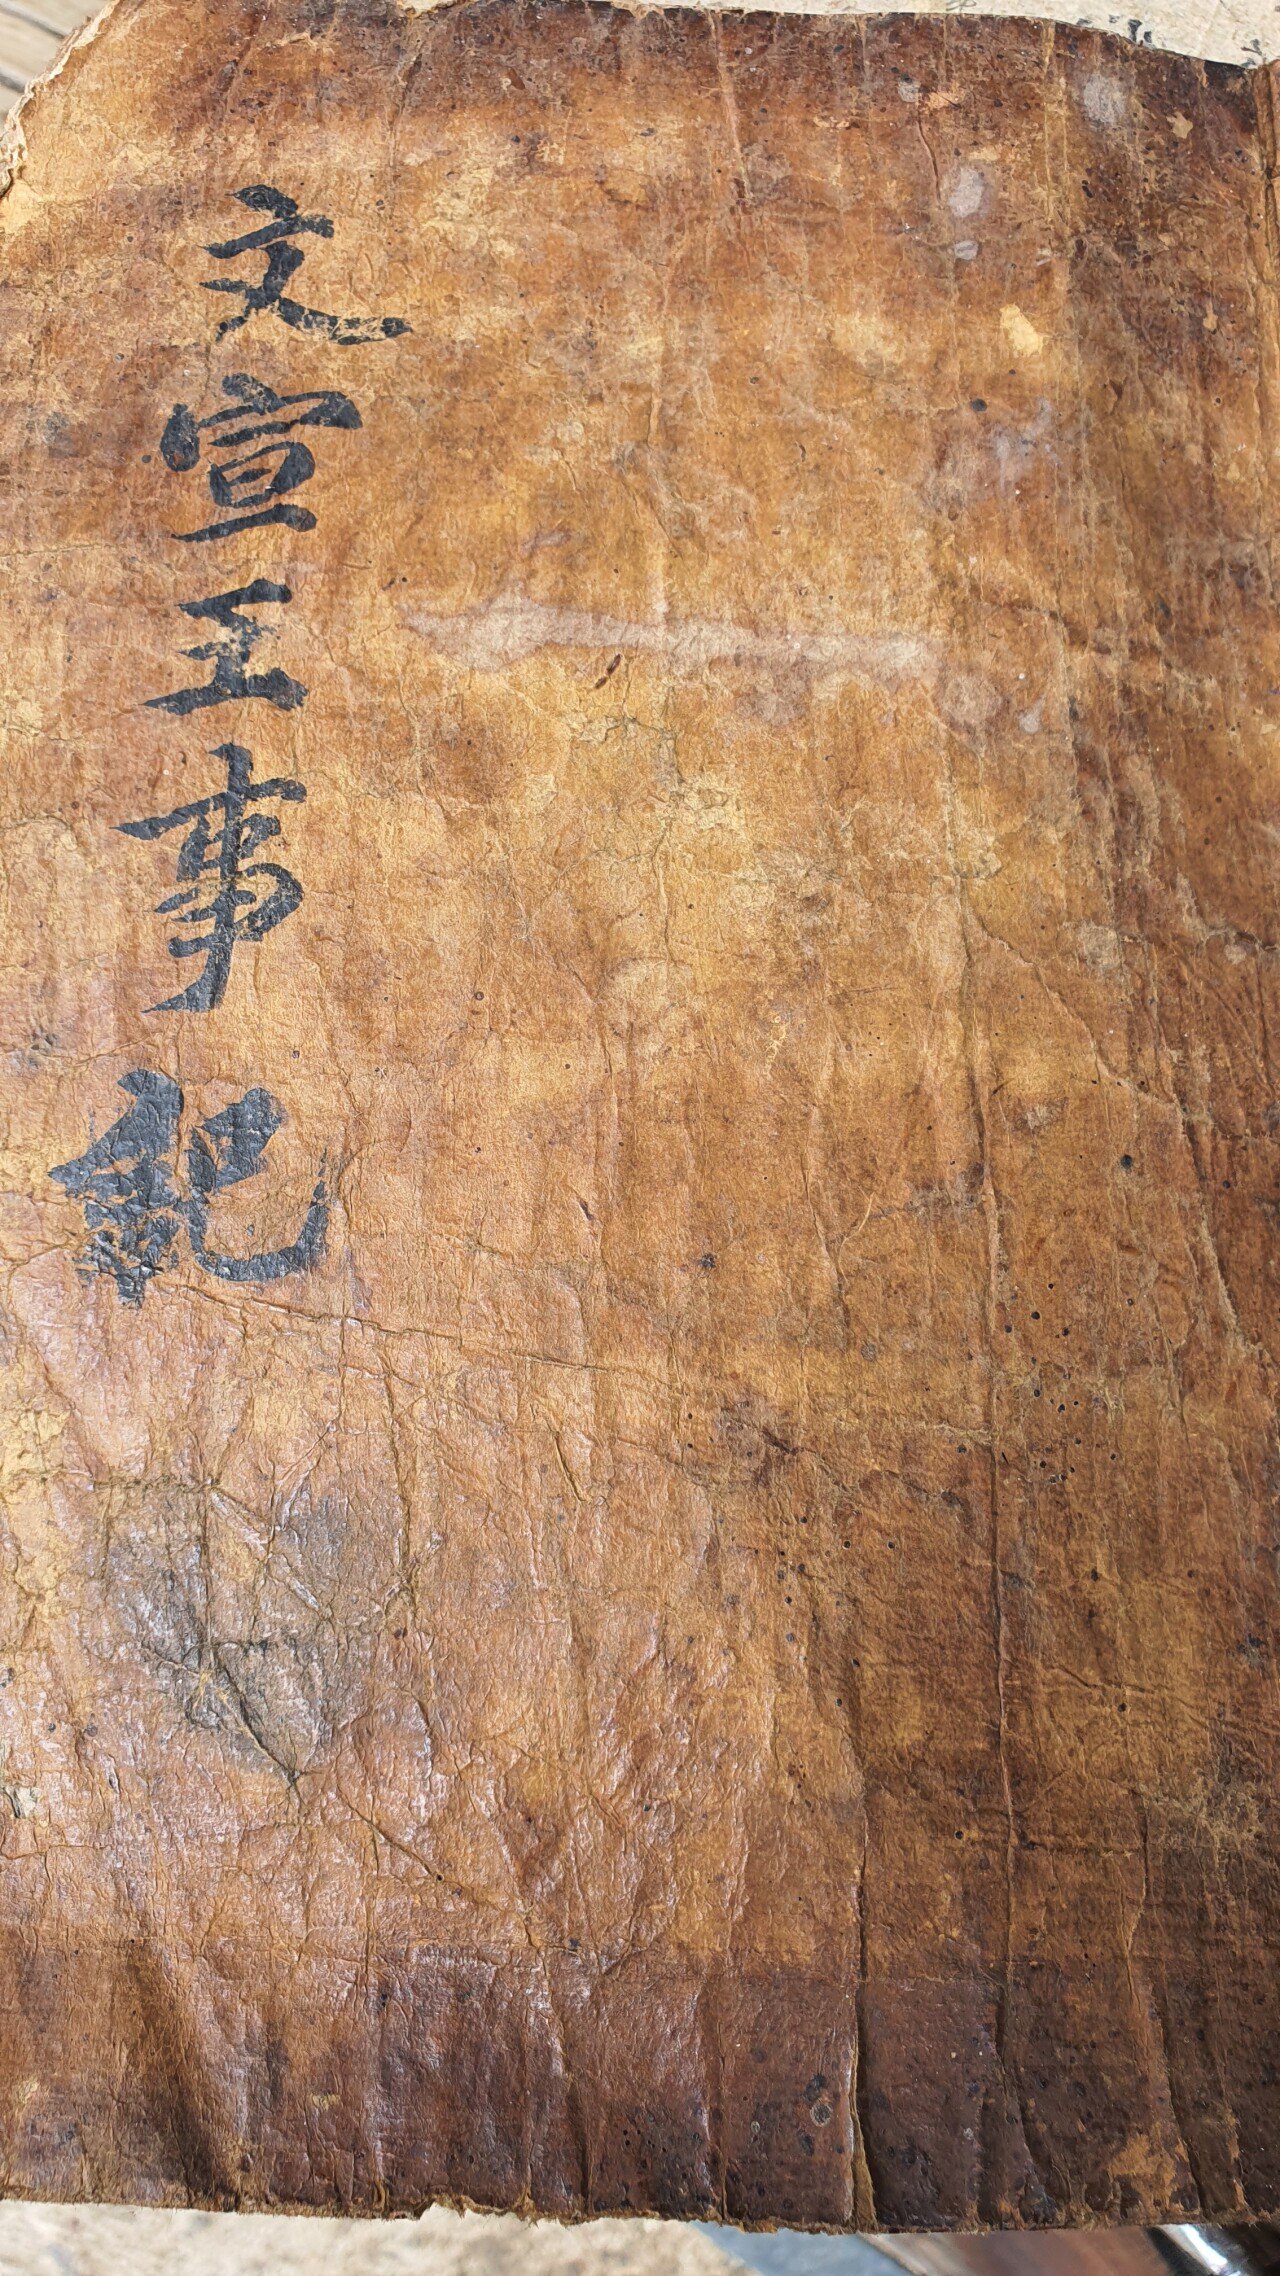 文宣王事紀